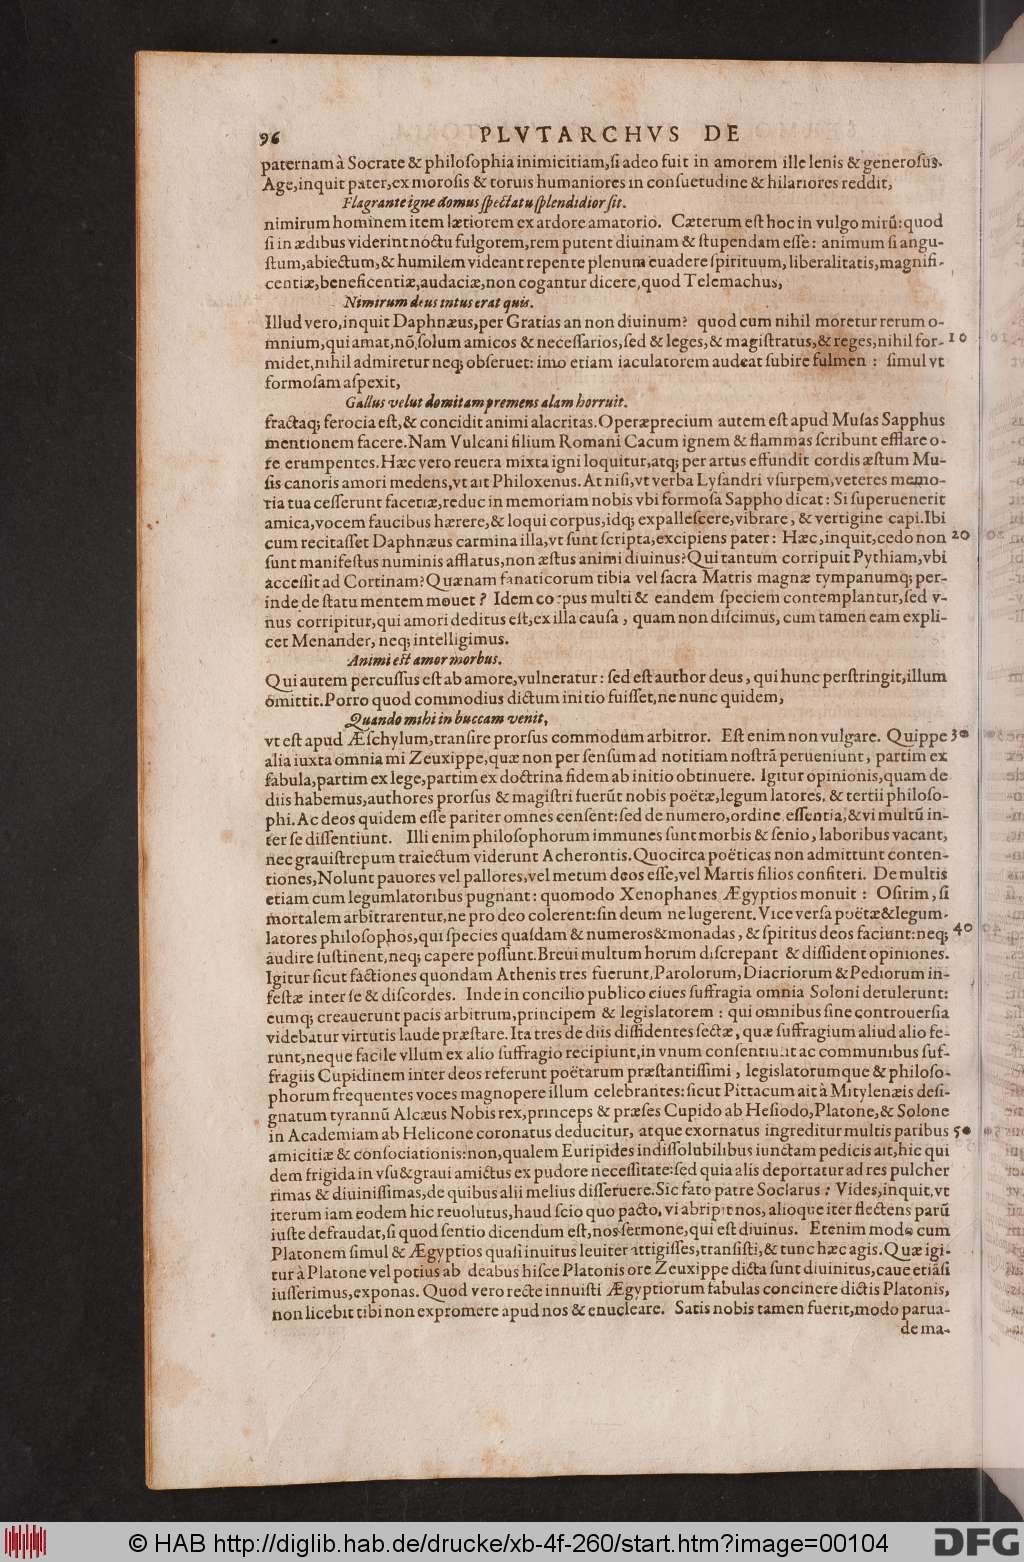 96 PLVTARCHVS DE
paternam à Socrate & philosophia inimicitiam, si adeo fuit in amorem ille lenis & generosus.
Age, inquit pater, ex morosis & toruis humaniores in consuetudine & hilariores reddit,
Flagrante igne domus spectatu splendidior sit.
nimirum hominem item lætiorem ex ardore amatorio. Cæterum est hoc in vulgo mirū: quod
si in ædibus viderint noctu fulgorem, rem putent diuinam & stupendam esse: animum si angu-
stum, abiectum, & humilem videant repente plenum euadere spirituum, liberalitatis, magnifi-
centiæ, beneficentiæ, audaciæ, non cogantur dicere, quod Telemachus,
Nimirum deus intus erat quis.
Illud vero, inquit Daphnæus, per Gratias an non diuinum? quod cum nihil moretur rerum o-
mnium, qui amat, nō solum amicos & necessarios, sed & leges, & magistratus, & reges, nihil for- 10
midet, nihil admiretur neq; obseruet: imo etiam iaculatorem audeat subire fulmen : simul vt
formosam aspexit,
Gallus velut domitam premens alam horruit.
fractaq; ferocia est, & concidit animi alacritas. Operæprecium autem est apud Musas Sapphus
mentionem facere. Nam Vulcani filium Romani Cacum ignem & flammas scribunt efflare o-
re erumpentes. Hæc vero reuera mixta igni loquitur, atq; per artus effundit cordis æstum Mu-
sis canoris amori medens, vt ait Philoxenus. At nisi, vt verba Lysandri vsurpem, veteres memo-
ria tua cesserunt facetiæ, reduc in memoriam nobis vbi formosa Sappho dicat: Si superuenerit
amica, vocem faucibus hærere, & loqui corpus, idq; expallescere, vibrare, & vertigine capi. Ibi
cum recitasset Daphnæus carmina illa, vt sunt scripta, excipiens pater: Hæc, inquit, cedo non 20
sunt manifestus numinis afflatus, non æstus animi diuinus? Qui tantum corripuit Pythiam, vbi
accessit ad Cortinam? Quænam fanaticorum tibia vel sacra Matris magnæ tympanumq; per-
inde de statu mentem mouet? Idem corpus multi & eandem speciem contemplantur, sed v-
nus corripitur, qui amori deditus est, ex illa causa, quam non discimus, cum tamen eam expli-
cet Menander, neq; intelligimus.
Animi est amor morbus.
Qui autem percussus est ab amore, vulneratur: sed est author deus, qui hunc perstringit, illum
omittit. Porro quod commodius dictum initio fuisset, ne nunc quidem,
Quando mihi in buccam venit,
vt est apud Æschylum, transire prorsus commodum arbitror. Est enim non vulgare. Quippe 30
alia iuxta omnia mi Zeuxippe, quæ non per sensum ad notitiam nostrā perueniunt, partim ex
fabula, partim ex lege, partim ex doctrina fidem ab initio obtinuere. Igitur opinionis, quam de
diis habemus, authores prorsus & magistri fuerūt nobis poëtæ, legum latores, & tertii philoso-
phi. Ac deos quidem esse pariter omnes censent: sed de numero, ordine essentia, & vi multū in-
ter se dissentiunt. Illi enim philosophorum immunes sunt morbis & senio, laboribus vacant,
nec grauistrepum traiectum viderunt Acherontis. Quocirca poëticas non admittunt conten-
tiones, Nolunt pauores vel pallores, vel metum deos esse, vel Martis filios confiteri. De multis
etiam cum legumlatoribus pugnant: quomodo Xenophanes Ægyptios monuit : Osirim, si
mortalem arbitrarentur, ne pro deo colerent: sin deum ne lugerent. Vice versa poëtæ & legum-
latores philosophos, qui species quasdam & numeros & monadas, & spiritus deos faciunt: neq; 40
audire sustinent, neq; capere possunt. Breui multum horum discrepant & dissident opiniones.
Igitur sicut factiones quondam Athenis tres fuerunt, Parolorum, Diacriorum & Pediorum in-
festæ inter se & discordes. Inde in concilio publico ciues suffragia omnia Soloni detulerunt:
eumq; creauerunt pacis arbitrum, principem & legislatorem : qui omnibus sine controuersia
videbatur virtutis laude præstare. Ita tres de diis dissidentes sectæ, quæ suffragium aliud alio fe-
runt, neque facile vllum ex alio suffragio recipiunt, in vnum consentiunt ac communibus suf-
fragiis Cupidinem inter deos referunt poëtarum præstantissimi, legislatorumque & philoso-
phorum frequentes voces magnopere illum celebrantes: sicut Pittacum ait à Mitylenæis desi-
gnatum tyrannū Alcæus Nobis rex, princeps & præses Cupido ab Hesiodo, Platone, & Solone
in Academiam ab Helicone coronatus deducitur, atque exornatus ingreditur multis paribus 50
amicitiæ & consociationis: non, qualem Euripides indissolubilibus iunctam pedicis ait, hic qui
dem frigida in vsu & graui amictus ex pudore necessitate: sed quia alis deportatur ad res pulcher
rimas & diuinissimas, de quibus alii melius disseruere. Sic fato patre Soclarus : Vides, inquit, vt
iterum iam eodem hic reuolutus, haud scio quo pacto, vi abripit nos, alioque iter flectens parū
iuste defraudat, si quod sentio dicendum est, nos sermone, qui est diuinus. Etenim modo cum
Platonem simul & Ægyptios quasi inuitus leuiter attigisses, transisti, & tunc hæc agis. Quæ igi-
tur à Platone vel potius ab deabus hisce Platonis ore Zeuxippe dicta sunt diuinitus, caue etiāsi
iusserimus, exponas. Quod vero recte innuisti Ægyptiorum fabulas concinere dictis Platonis,
non licebit tibi non expromere apud nos & enucleare. Satis nobis tamen fuerit, modo parua-
de ma-
© HAB http://diglib.hab.de/drucke/xb-4f-260/start.htm?image=00104
DFG